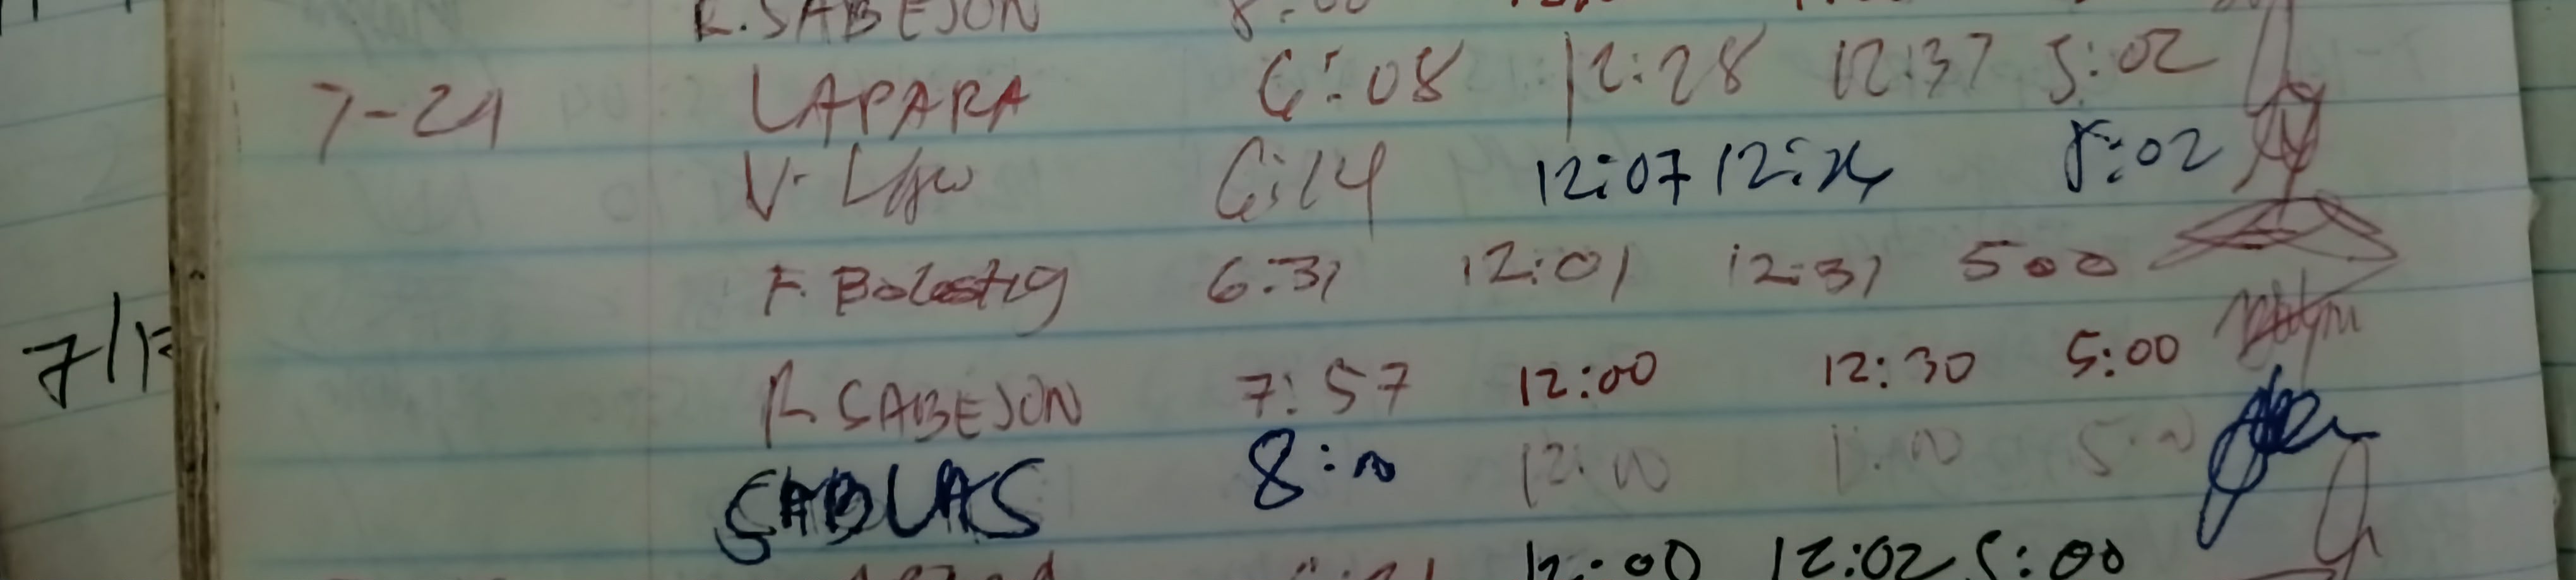 R. SABEJON 8:00
7-24 LAPARA 6:08 12:28 12:37 5:02
V. 6:14 12:07 12: 5:02
F. Bolastig 6:31 12:01 12:31 500
R. SABEJON 7:57 12:00 12:30 5:00
7/
SABLAS 8:00 12:00 1:00 5:00
12:00 12:02 5:00